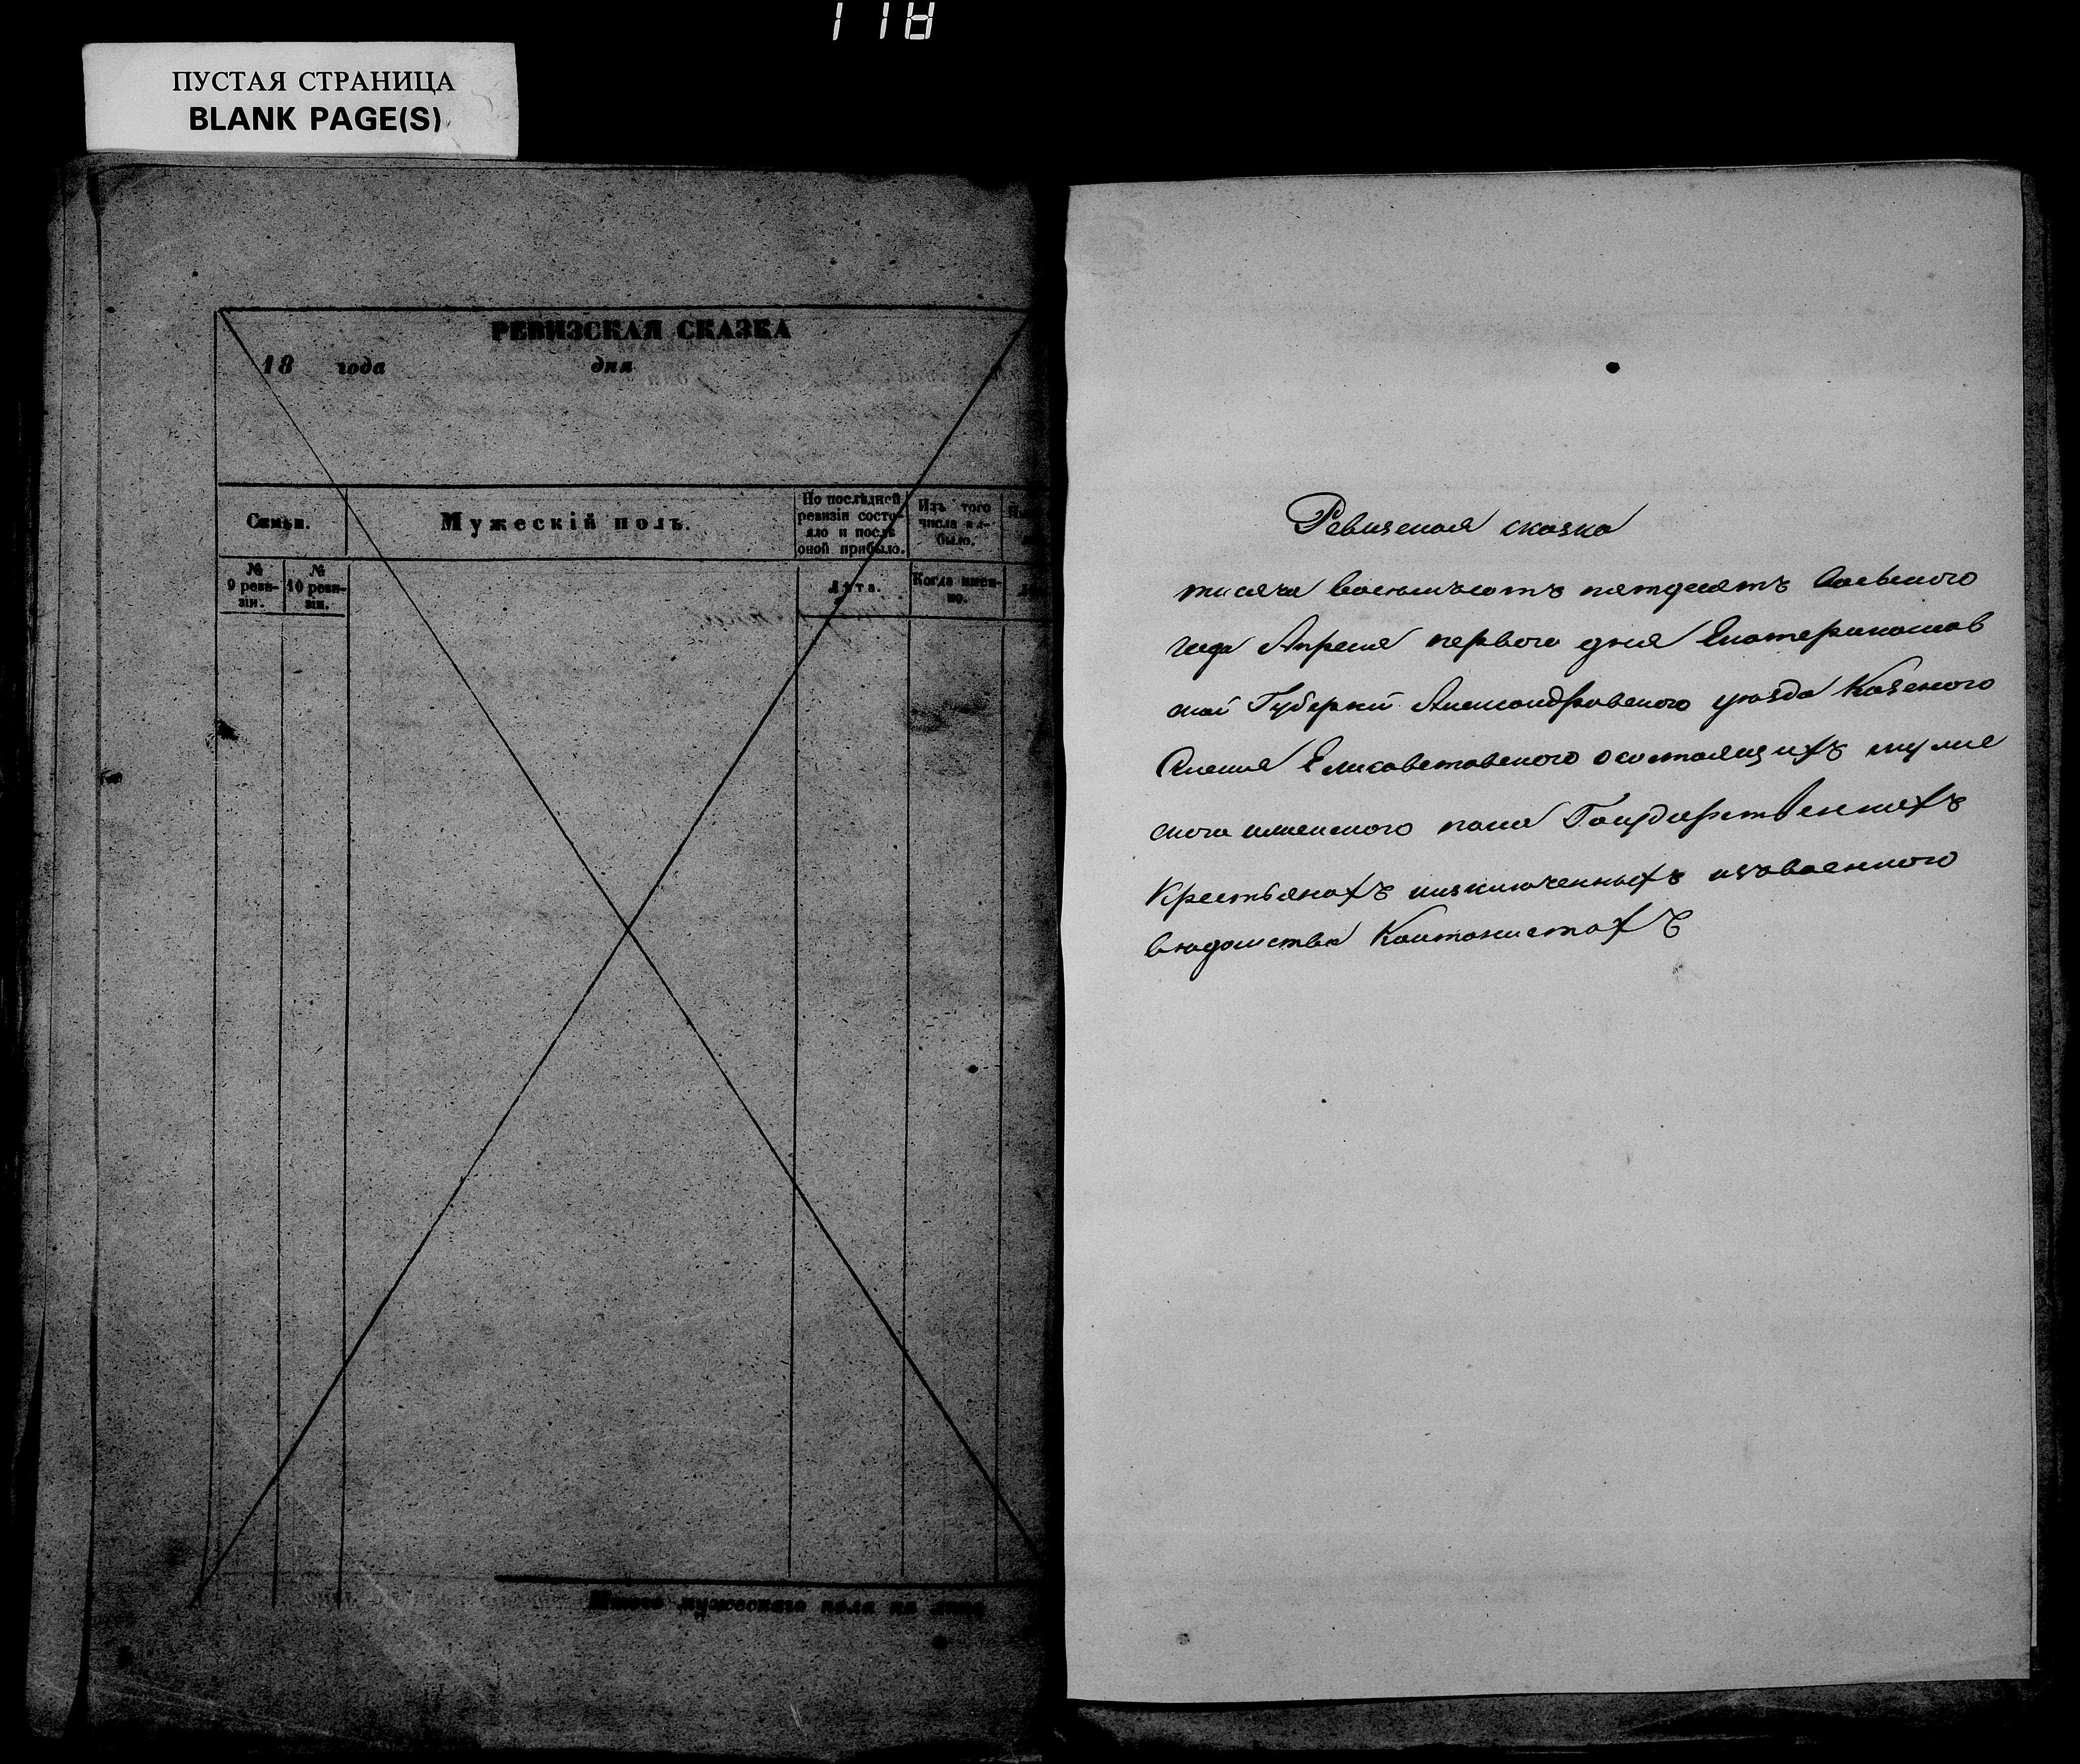 118
ПУСТАЯ СТРАНИЦА
BLANK PAGE(S)
РЕВИЗСКАЯ СКАЗКА
18 года дня
Семьи.
Мужескій полъ.
По послѣдней
ревизіи состо-
яло и послѣ
оной прибыло.
Изъ того
числа вы-
было.
№
9 реви-
зіи.
№
10 реви-
зіи.
Лѣта.
Когда имен-
но.
Итого мужескаго пола на лицо
Ревизская сказка
тисяча восемьсотъ пятдесятъ
года Апреля первого дня Екатеринослав
ской Губерніи Александровского уѣзда Казеного
Селения Елисаветовского осостоящихъ
мужеского пола Государственныхъ
Крестьянахъ изключенныхъ изъвоенного
вѣдомства Кантонистахъ